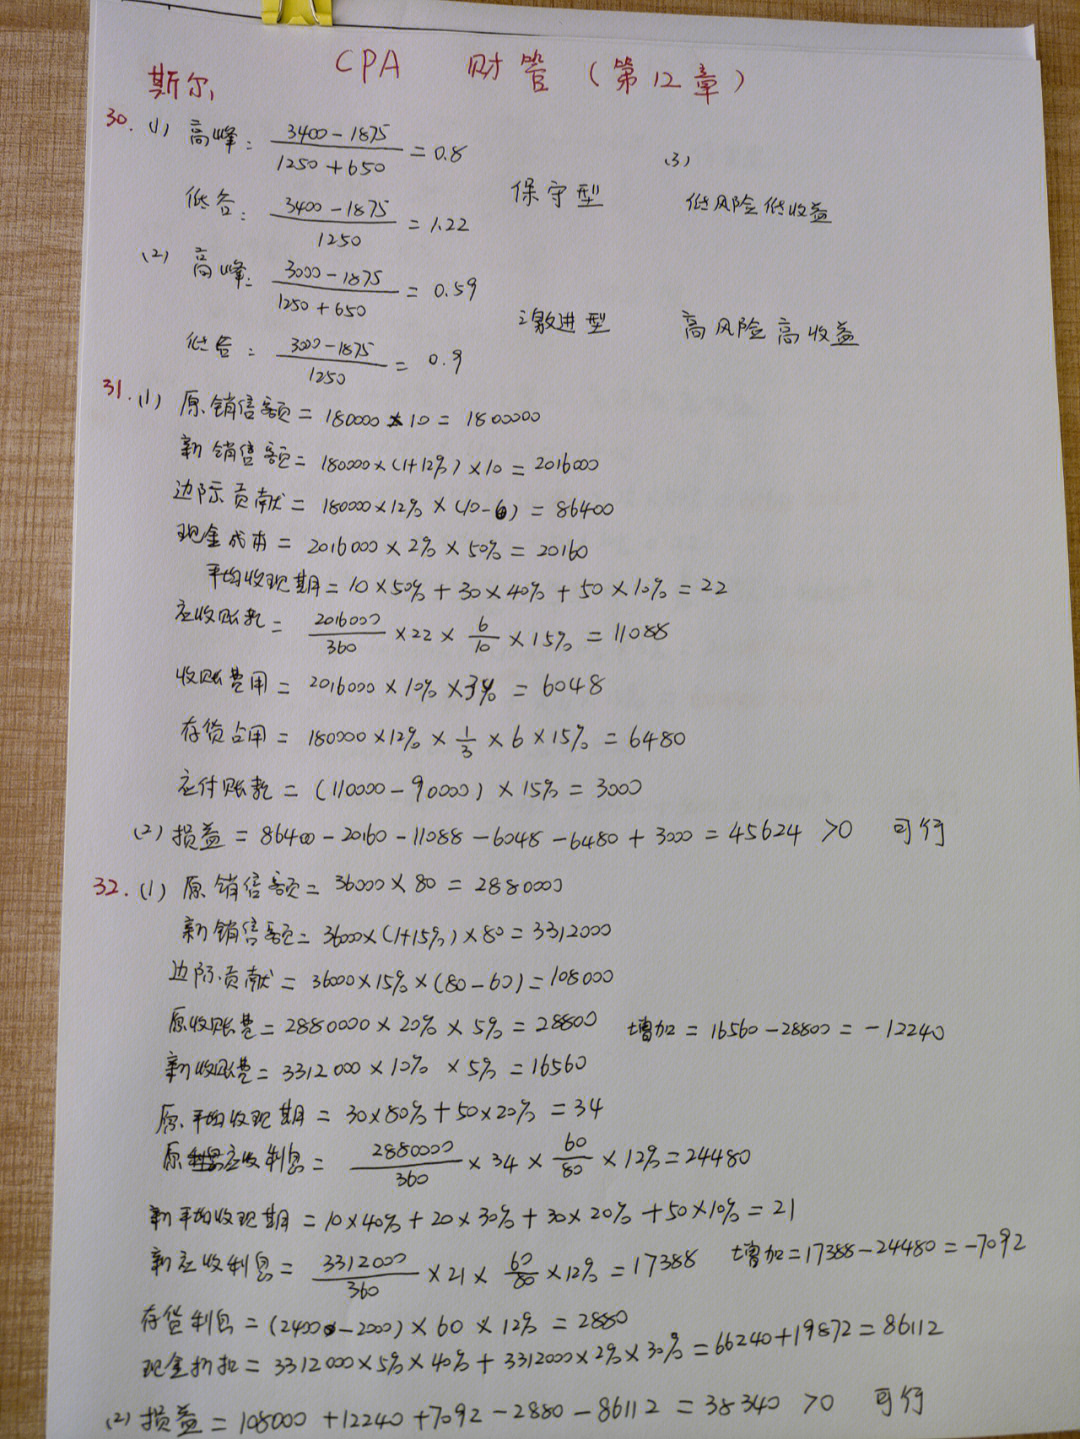 CPA 财管（第12章）
斯尔
30. (1) 高峰： (3400-1875)/(1250+650) = 0.8
(3)
低谷： (3400-1875)/1250 = 1.22 保守型 低风险低收益
(2) 高峰： (3000-1875)/(1250+650) = 0.59
激进型 高风险高收益
低谷： (3000-1875)/1250 = 0.9
31. (1) 原销售额 = 180000×10 = 1800000
新销售额 = 180000×(1+12%)×10 = 2016000
边际贡献 = 180000×12%×(10-6) = 86400
现金成本 = 2016000×2%×50% = 20160
平均收现期 = 10×50%+30×40%+50×10% = 22
应收账款 = 2016000/360 ×22× 6/10 ×15% = 11088
收账费用 = 2016000×10%×3% = 6048
存货占用 = 180000×12%× 1/3 ×6×15% = 6480
应付账款 = (110000-90000)×15% = 3000
(2) 损益 = 86400-20160-11088-6048-6480+3000 = 45624 >0 可行
32. (1) 原销售额 = 36000×80 = 2880000
新销售额 = 36000×(1+15%)×80 = 3312000
边际贡献 = 36000×15%×(80-60) = 108000
原收账费 = 2880000×20%×5% = 28800 增加 = 16560-28800 = -12240
新收账费 = 3312000×10%×5% = 16560
原平均收现期 = 30×80%+50×20% = 34
原应收利息 = 2880000/360 ×34× 60/80 ×12% = 24480
新平均收现期 = 10×40%+20×30%+30×20%+50×10% = 21
新应收利息 = 3312000/360 ×21× 60/80 ×12% = 17388 增加 = 17388-24480 = -7092
存货利息 = (2400-2000)×60×12% = 2880
现金折扣 = 3312000×5%×40%+3312000×2%×30% = 66240+19872 = 86112
(2) 损益 = 108000+12240+7092-2880-86112 = 38340 >0 可行